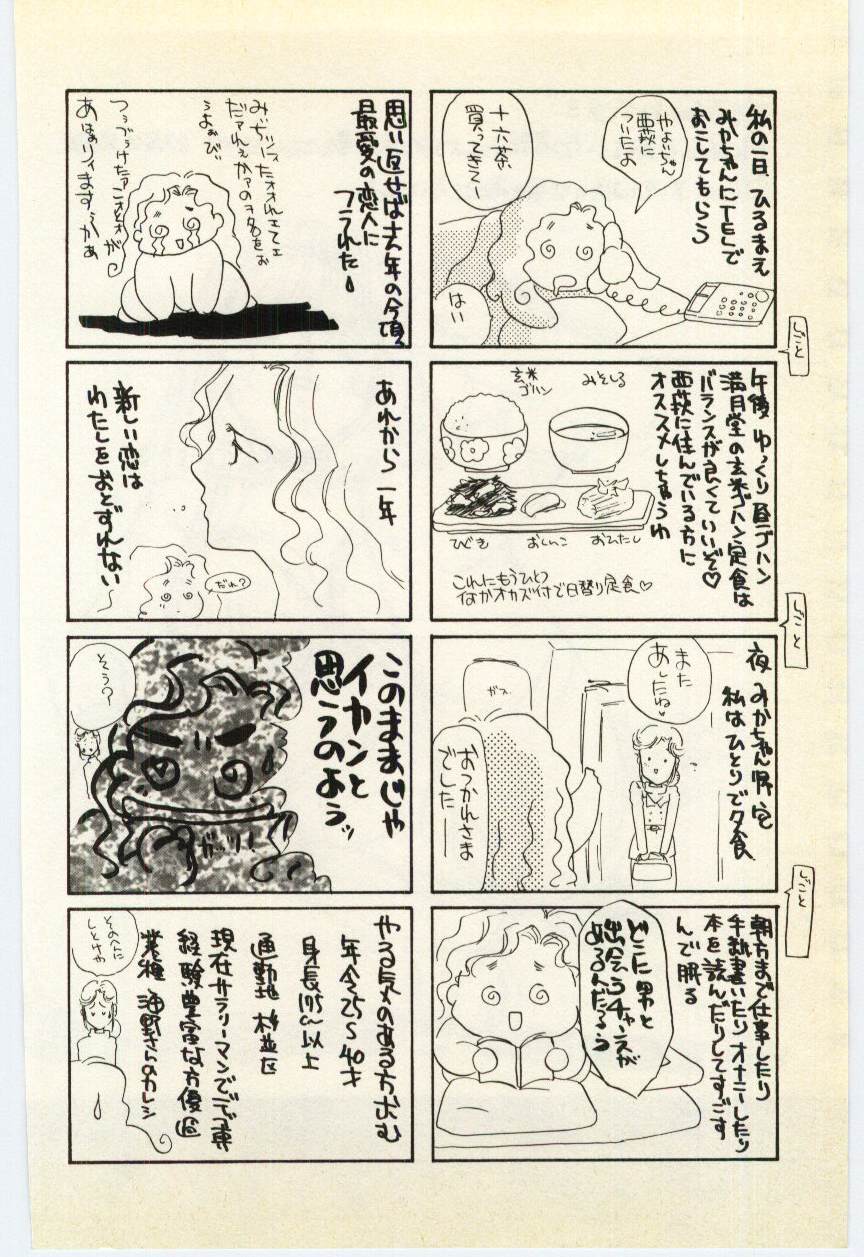 私の一日 ひるまえ
みかちゃんにTELで
おこしてもらう
やよいちゃん
西荻に
ついたよ
十六茶
買ってきて
はい
しごと
午後 ゆっくり昼ゴハン
満月堂の玄米ゴハン定食は
バランスが良くていいぞ♡
西荻に住んでいる方に
オススメしちゃうわ
みそしる
玄米
ゴハン
ひじき
おしんこ
おひたし
これにもうひとつ
なんかオカズ付で日替り定食♡
しごと
夜 みかちゃん帰宅
私はひとりで夕食
また
あしたね♡
ガス
おつかれさま
でしたー
しごと
朝方まで仕事したり
手紙書いたりオナニーしたり
本を読んだりしてすごす
んで眠る
どこに男と
出会うチャンスが
あるんだろう
思い返せば去年の今頃、
最愛の恋人に
フラれた
あれから一年
新しい恋は
わたしをおとずれない
だれ?
このままじゃ
イカンと
思うのよぅッ
そう?
ガッ!!
やる気のある方求む
年令25〜40才
身長175cm以上
通勤地 杉並区
現在サラリーマンでで
経験豊富な方優遇
業種 海野さんのカレシ
そのへんに
しとけや